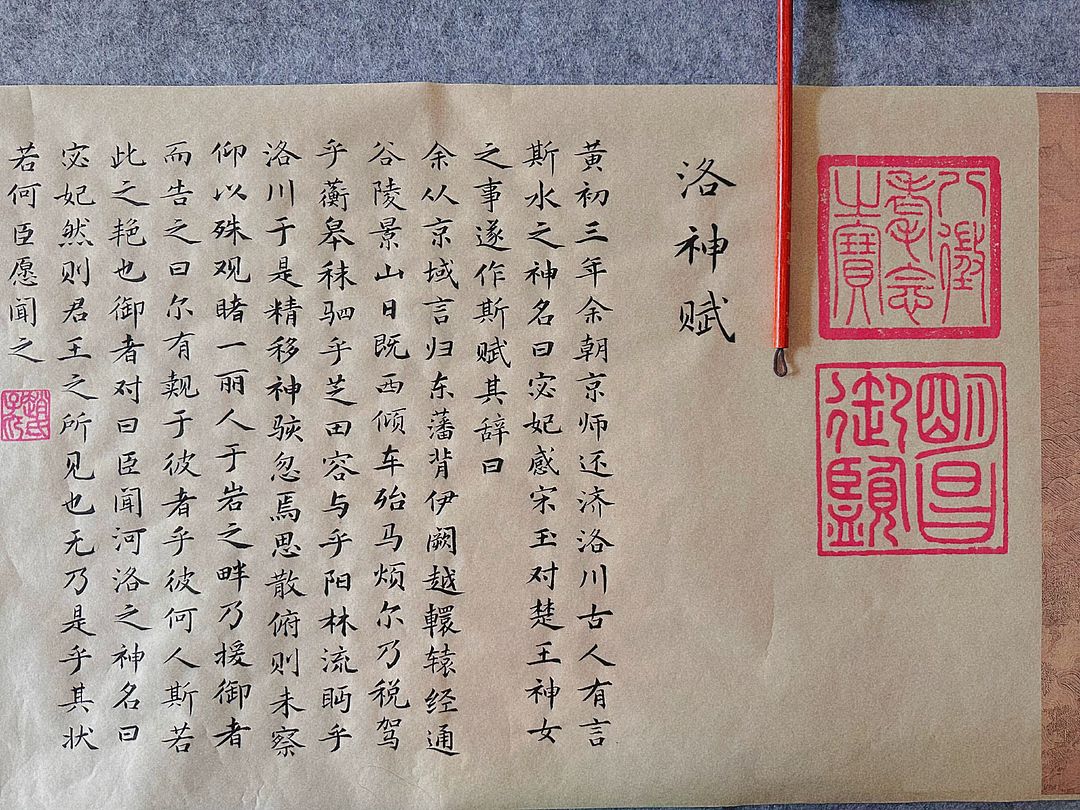 八徵
耄念
之寶
明昌
御覽
洛神赋
黄初三年余朝京师还济洛川古人有言
斯水之神名曰宓妃感宋玉对楚王神女
之事遂作斯赋其辞曰
余从京域言归东藩背伊阙越轘辕经通
谷陵景山日既西倾车殆马烦尔乃税驾
乎蘅皋秣驷乎芝田容与乎阳林流眄乎
洛川于是精移神骇忽焉思散俯则未察
仰以殊观睹一丽人于岩之畔乃援御者
而告之曰尔有觌于彼者乎彼何人斯若
此之艳也御者对曰臣闻河洛之神名曰
宓妃然则君王之所见也无乃是乎其状
若何臣愿闻之
趙氏
子昂